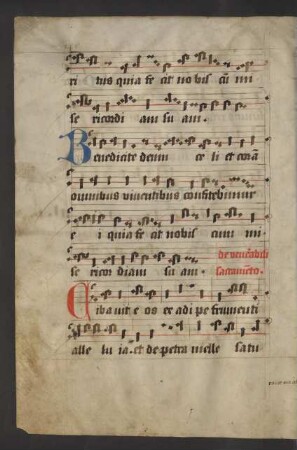 ri tus quia fe cit no bis cū mi
se ricordi am su am.
Benedicite deum ce li et corā
omnibus viventibus confitebimur
e i quia fe cit nobis cum mi
se ricor diam su am. de venerabili
sacramēto.
Ciba vit e os ex adi pe frumenti
alle lu ia. et de petra melle satu